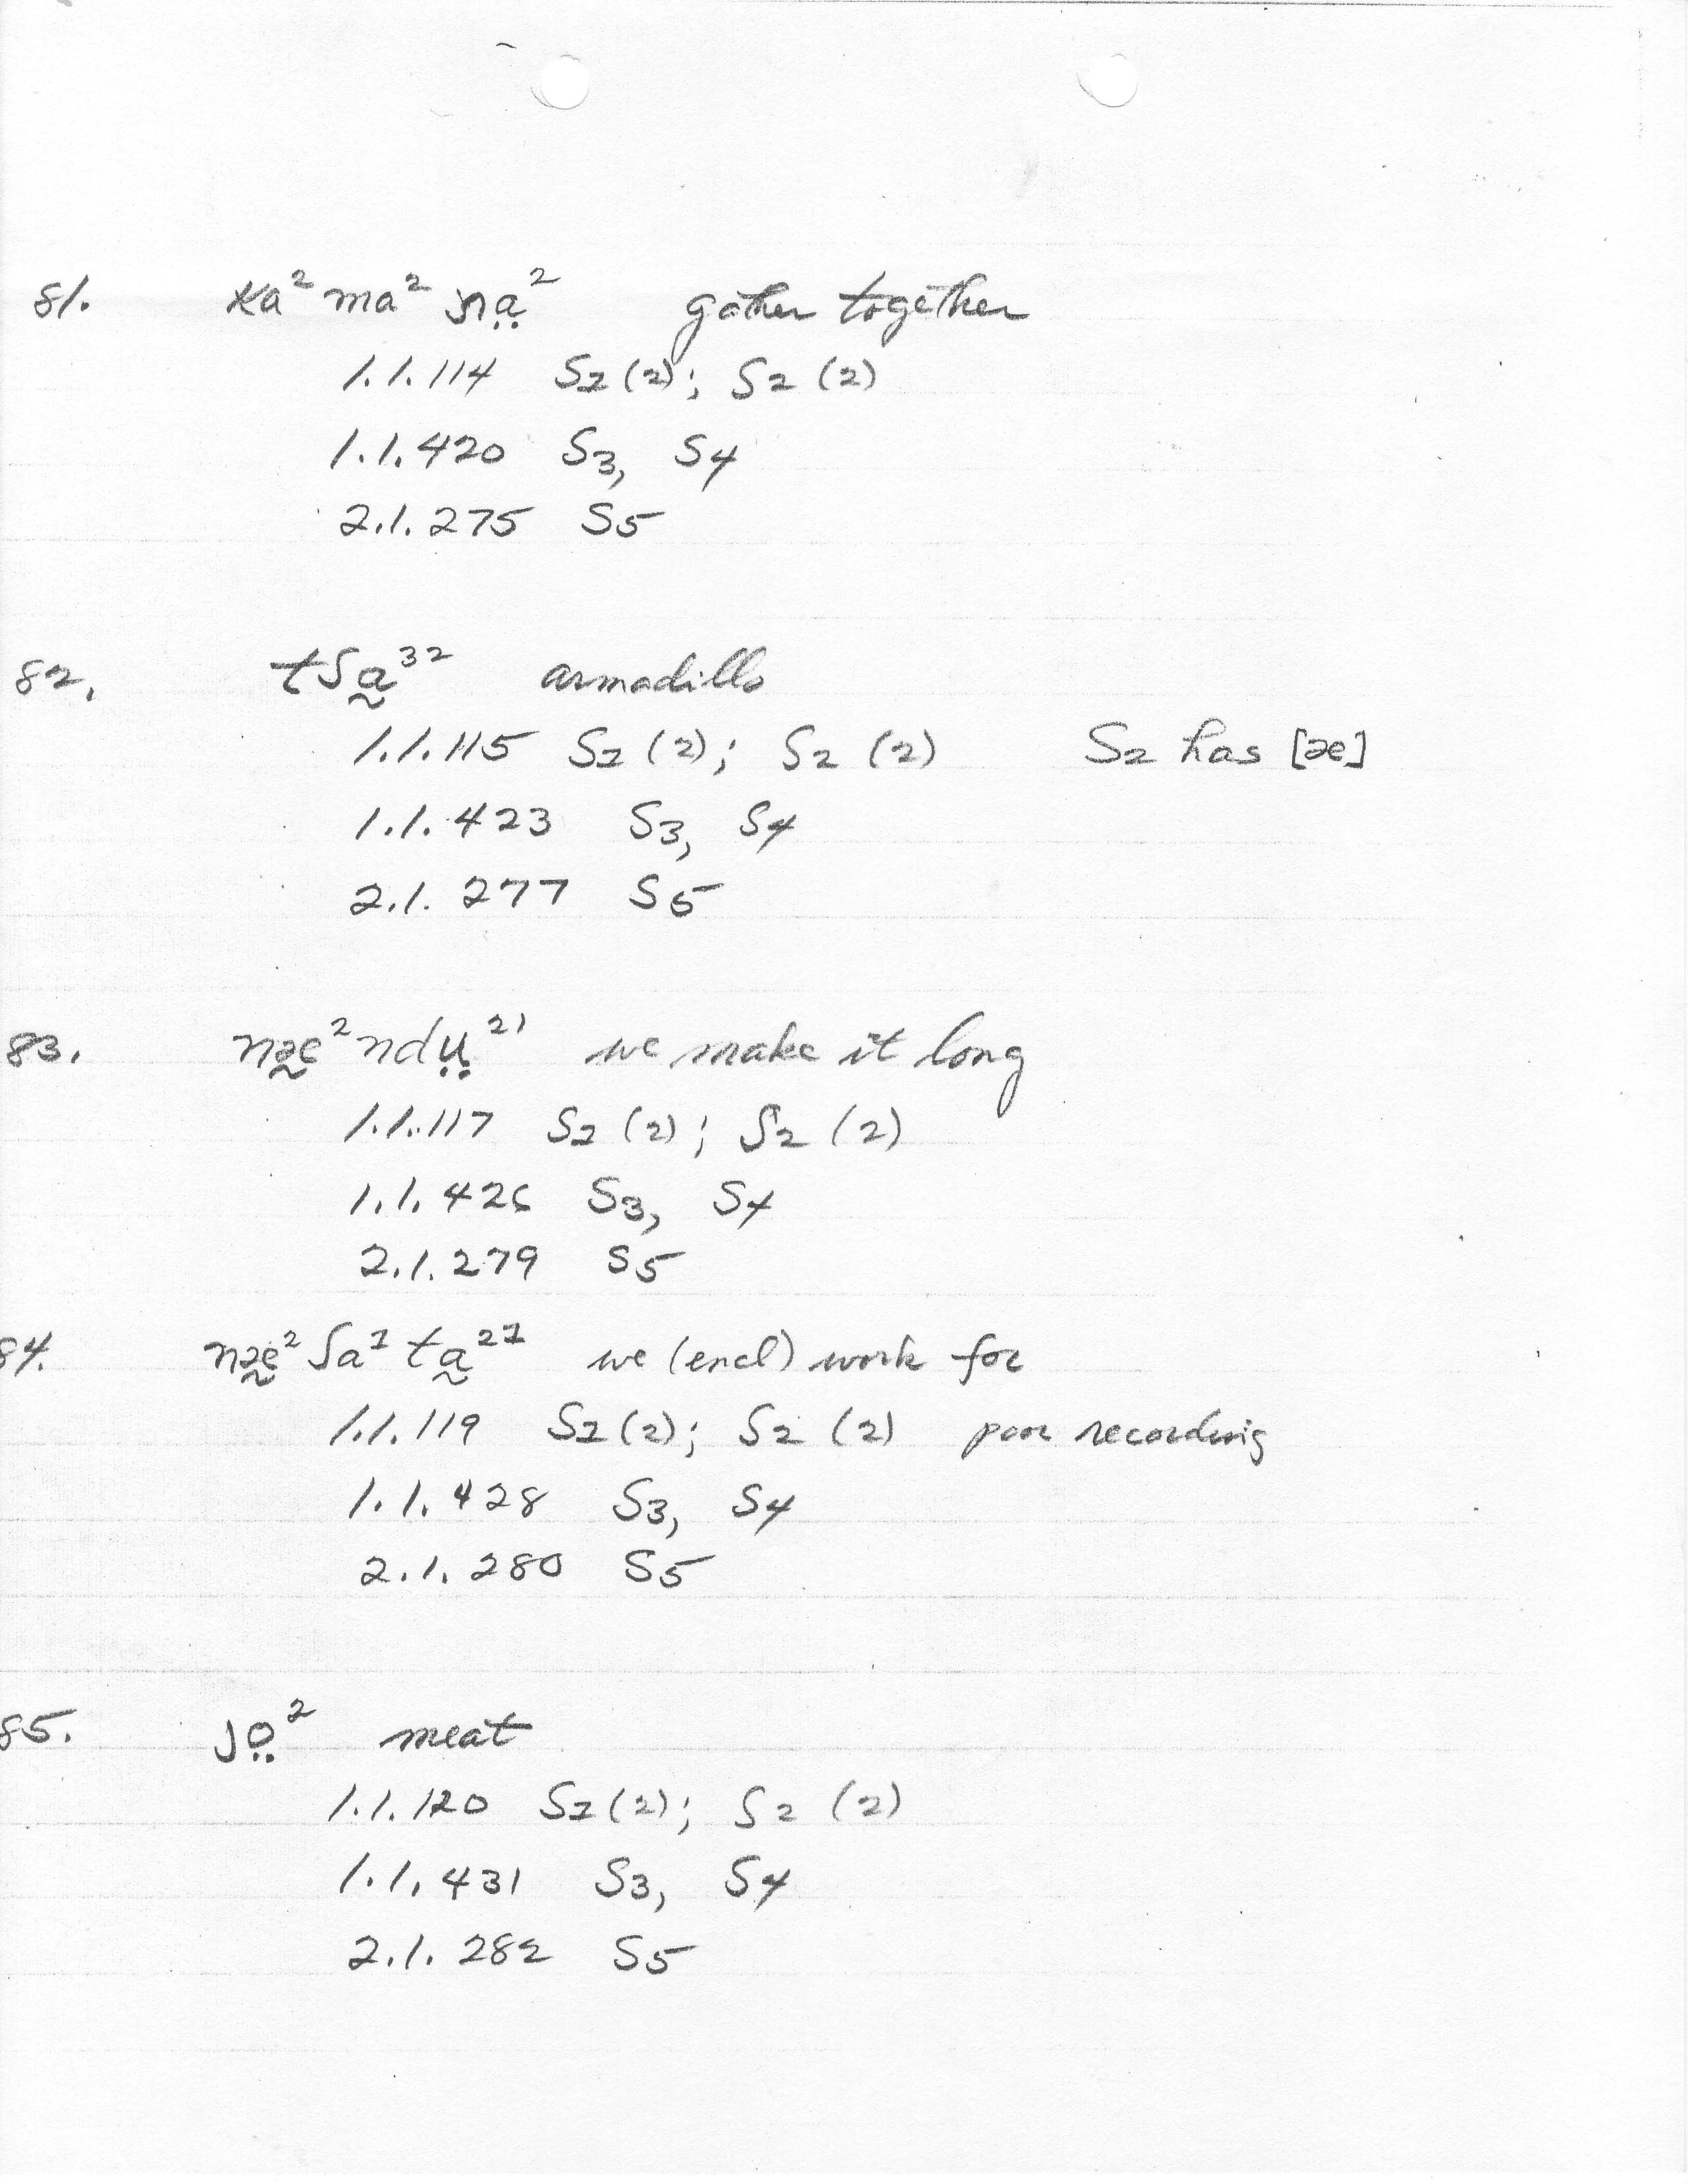 81. ka² ma² ɲa̤² gather together
1.1.114 S1 (2); S2 (2)
1.1.420 S3, S4
2.1.275 S5
82. tʃa̰³² armadillo
1.1.115 S1 (2); S2 (2) S2 has [æ]
1.1.423 S3, S4
2.1.277 S5
83. næ̰²ndṳ²¹ we make it long
1.1.117 S1 (2); S2 (2)
1.1.426 S3, S4
2.1.279 S5
84. næ̰² ʃa¹ ta̰²¹ we (encl) work for
1.1.119 S1 (2); S2 (2) poor recording
1.1.428 S3, S4
2.1.280 S5
85. jo̤² meat
1.1.120 S1 (2); S2 (2)
1.1.431 S3, S4
2.1.282 S5